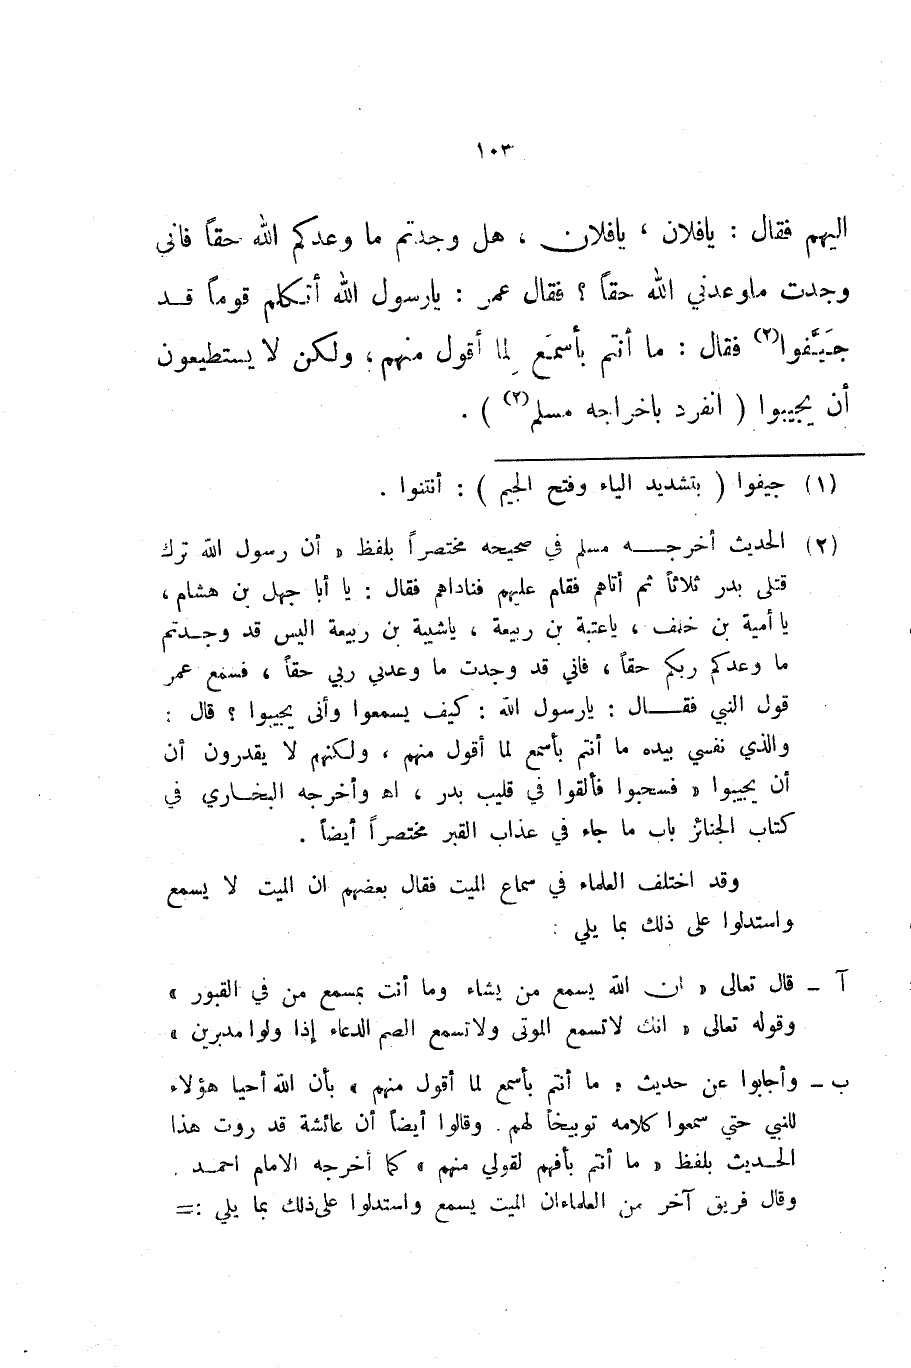 ١٠٣
اليهم فقال : يافلان ، يافلان ، هل وجدتم ما وعدكم الله حقاً فاني
وجدت ماوعدني الله حقاً ؟ فقال عمر : يارسول الله أتكلم قوماً قد
جَيَّفوا(٢) فقال : ما أنتم بأسمَع لِما أقول منهم ، ولكن لا يستطيعون
أن يجيبوا ( انفرد باخراجه مسلم(٢) ) .
(١) جيفوا ( بتشديد الياء وفتح الجيم ) : أنتنوا .
(٢) الحديث أخرجه مسلم في صحيحه مختصراً بلفظ « أن رسول الله ترك
قتلى بدر ثلاثاً ثم أتاهم فقام عليهم فناداهم فقال : يا أبا جهل بن هشام ،
يا أمية بن خلف ، ياعتبة بن ربيعة ، ياشيبة بن ربيعة اليس قد وجدتم
ما وعدكم ربكم حقاً ، فاني قد وجدت ما وعدني ربي حقاً ، فسمع عمر
قول النبي فقال : يارسول الله : كيف يسمعوا وأنى يجيبوا ؟ قال :
والذي نفسي بيده ما أنتم بأسمع لما أقول منهم ، ولكنهم لا يقدرون أن
أن يجيبوا « فسحبوا فألقوا في قليب بدر ، اه وأخرجه البخاري في
كتاب الجنائز باب ما جاء في عذاب القبر مختصراً أيضاً .
وقد اختلف العلماء في سماع الميت فقال بعضهم ان الميت لا يسمع
واستدلوا على ذلك بما يلي :
آ - قال تعالى « ان الله يسمع من يشاء وما أنت بمسمع من في القبور »
وقوله تعالى « انك لاتسمع الموتى ولاتسمع الصم الدعاء إذا ولوا مدبرين »
ب - وأجابوا عن حديث « ما أنتم بأسمع لما أقول منهم » بأن الله أحيا هؤلاء
للنبي حتي سمعوا كلامه توبيخاً لهم . وقالوا أيضاً أن عائشة قد روت هذا
الحديث بلفظ « ما أنتم بأفهم لقولي منهم » كما أخرجه الامام احمد .
وقال فريق آخر من العلماءان الميت يسمع واستدلوا على ذلك بما يلي :=